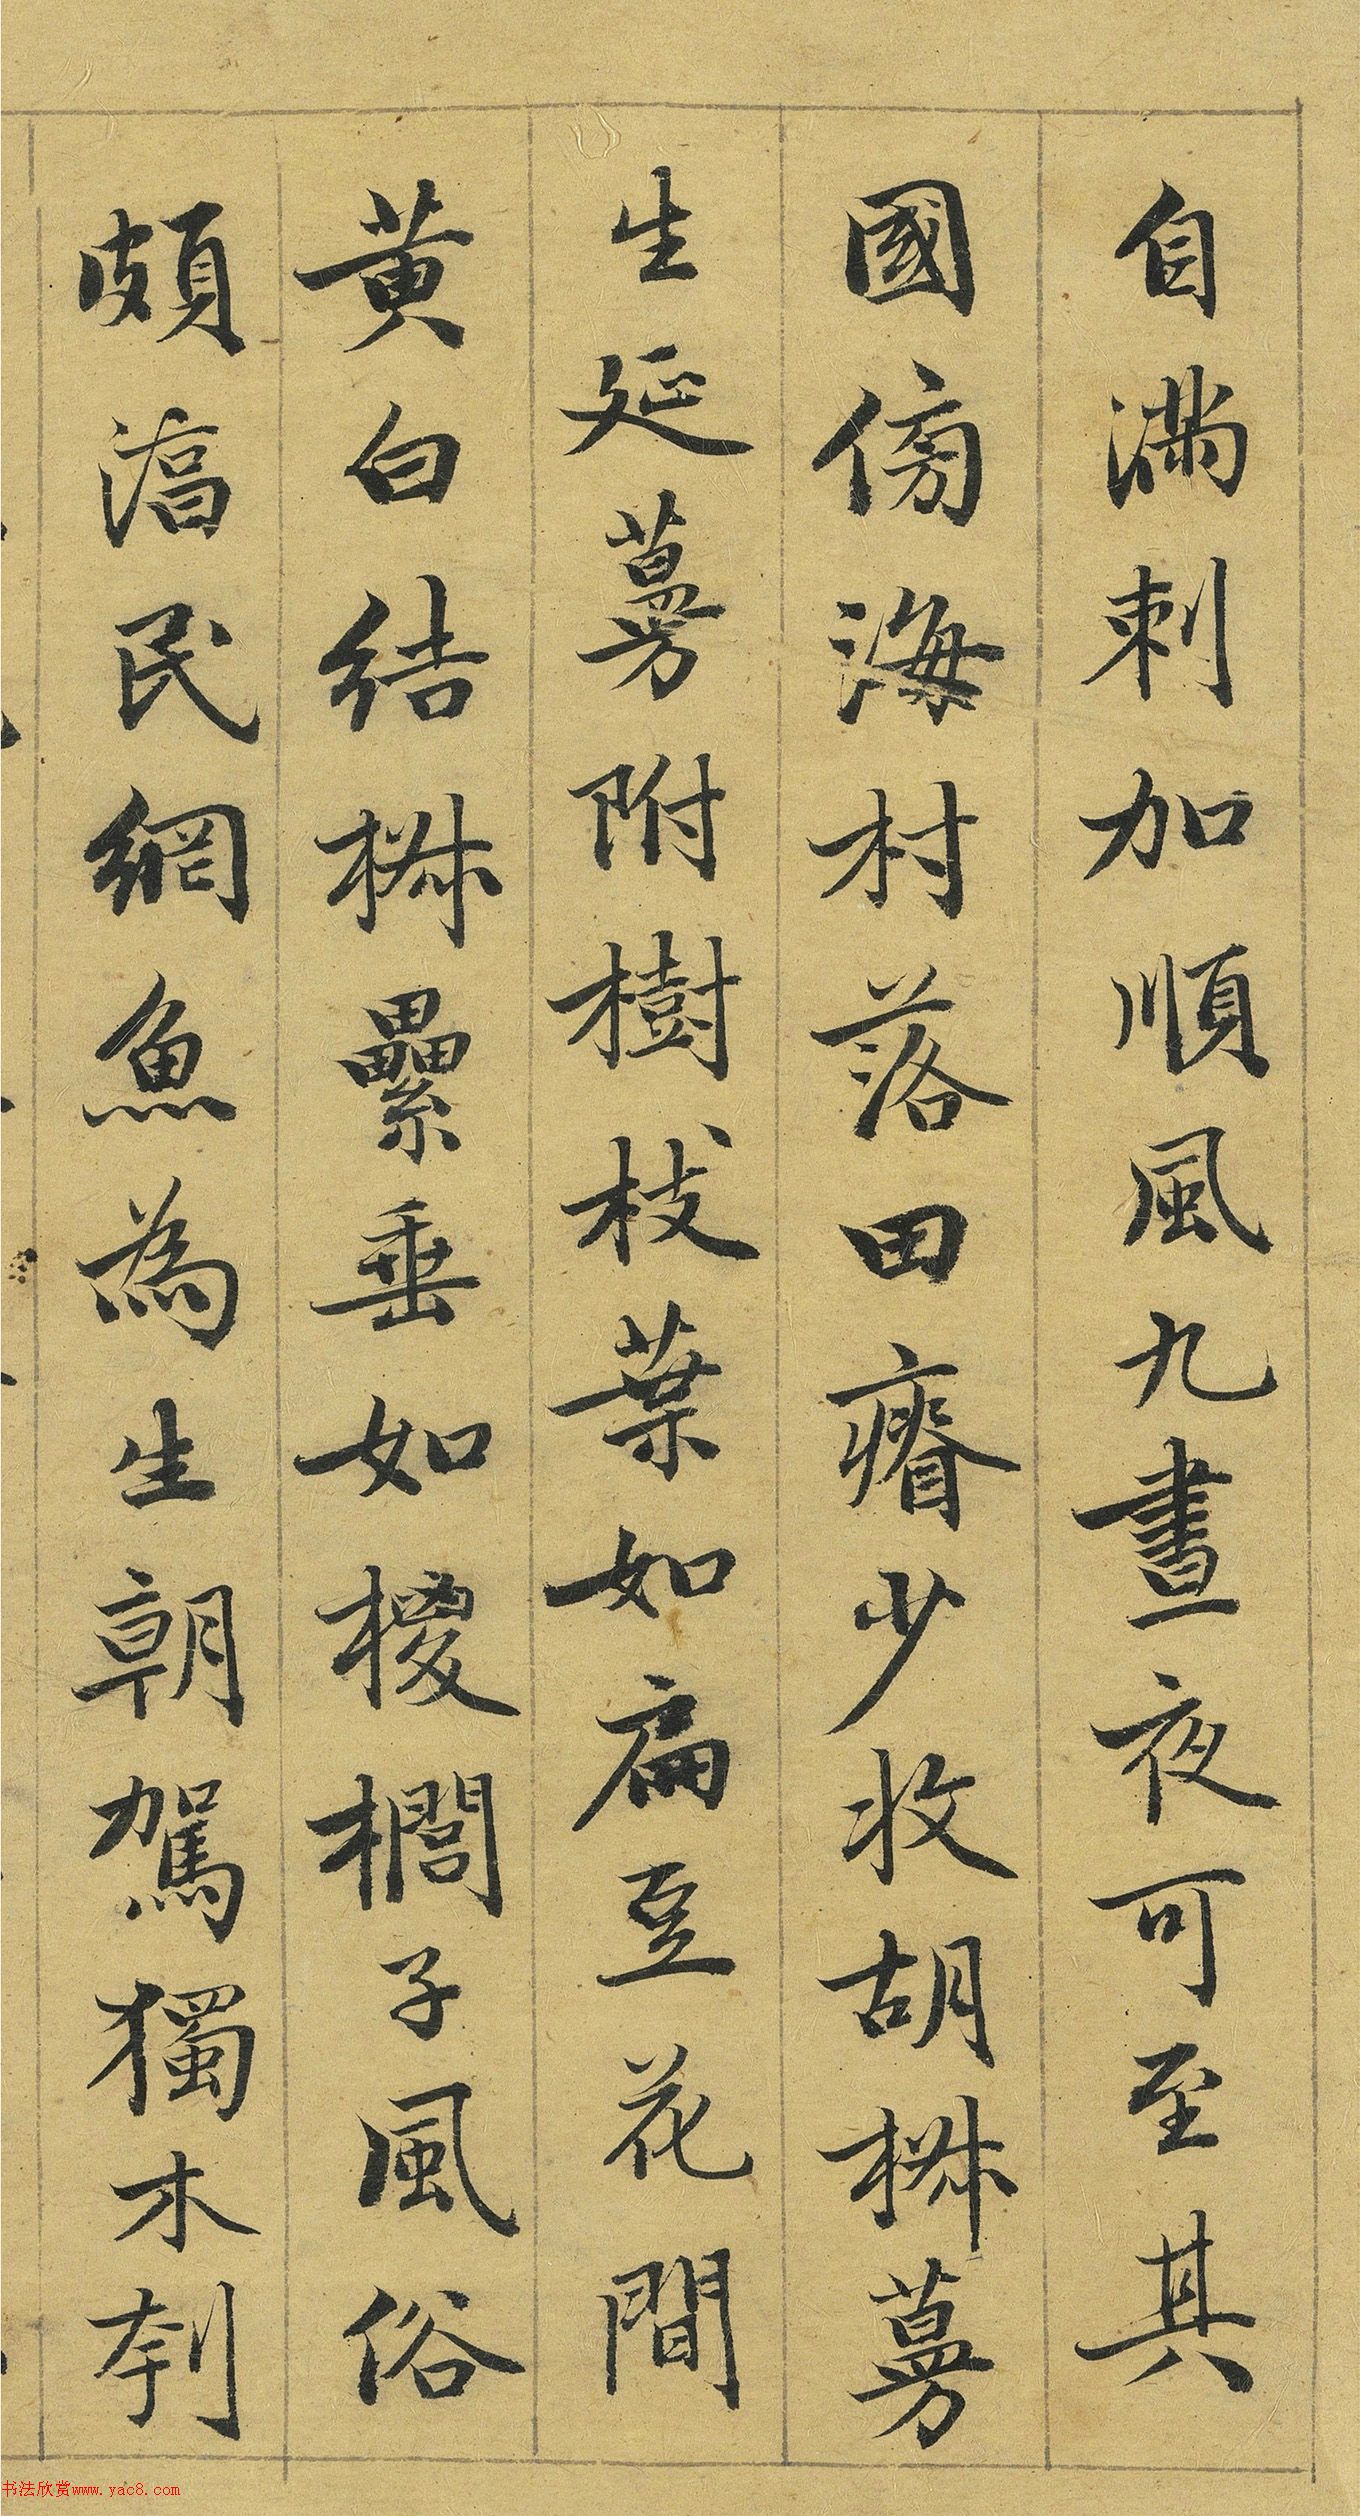 自滿剌加順風九晝夜可至其
國傍海村落田瘠少收胡椒蔓
生延蔓附樹枝葉如扁豆花間
黃白結椒纍垂如椶櫚子風俗
頗淳民網魚為生朝駕獨木刳
书法欣赏www.yac8.com